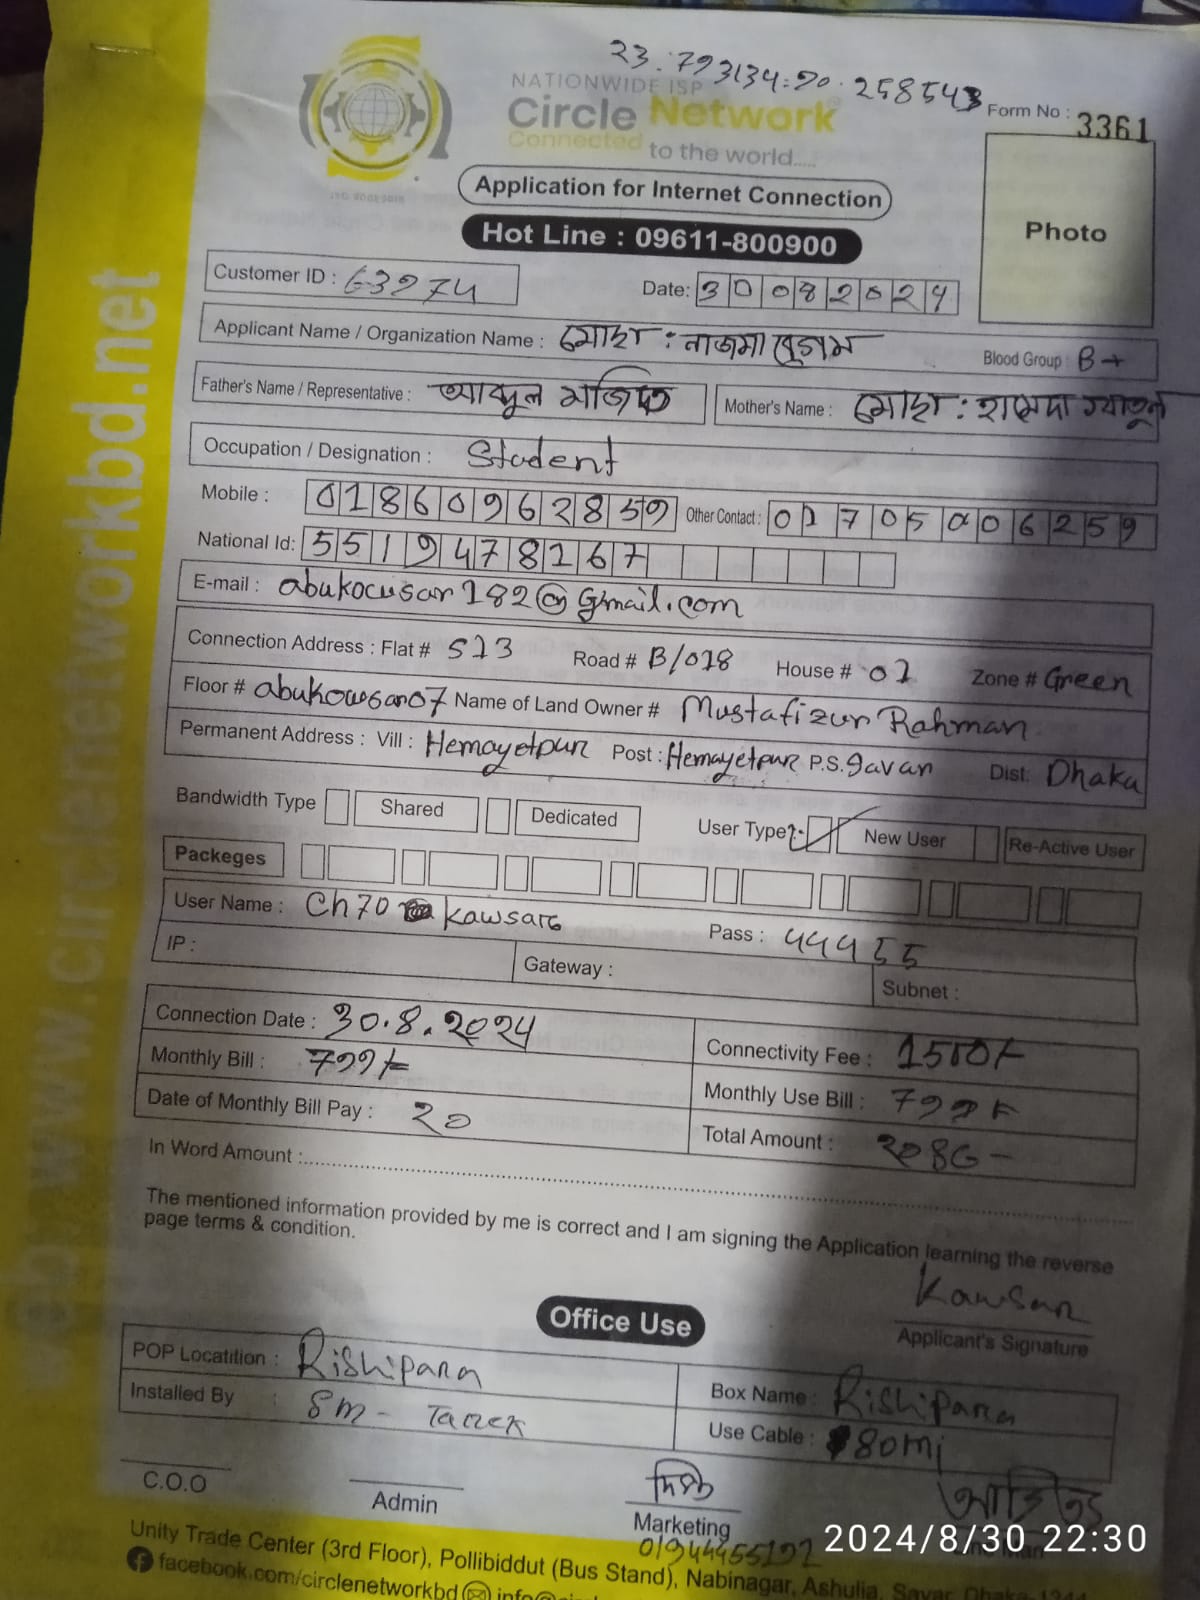 23.793134:90.258543
NATIONWIDE ISP
Circle Network
Connected to the world.....
Form No : 3361
Application for Internet Connection
Hot Line : 09611-800900
Photo
Customer ID : 63974
Date: 30082024
Applicant Name / Organization Name : মোছা : নাজমা বেগম
Blood Group : B+
Father's Name / Representative : আব্দুল মজিদ
Mother's Name : মোছা :
Occupation / Designation : Student
Mobile : 01860962859 Other Contact : 01705006259
National Id: 5519478167
E-mail : abukocusar182@gmail.com
Connection Address : Flat # 513 Road # B/018 House # 01 Zone # Green
Floor # abukowsar07 Name of Land Owner # Mustafizur Rahman
Permanent Address : Vill : Hemayetpur Post : Hemayetpur P.S. Savar Dist: Dhaka
Bandwidth Type Shared Dedicated User Type : New User Re-Active User
Packeges
User Name : Ch70 kawsar Pass : 44455
IP : Gateway : Subnet :
Connection Date : 30.8.2024
Connectivity Fee : 1500/-
Monthly Bill : 799/-
Monthly Use Bill : 799/-
Date of Monthly Bill Pay : 20
Total Amount :
In Word Amount :
The mentioned information provided by me is correct and I am signing the Application learning the reverse
page terms & condition.
Kawsar
Applicant's Signature
Office Use
POP Locatition : Rishipara
Box Name : Rishipara
Installed By : SM - Tarek
Use Cable : 80mi
C.O.O
Admin
Marketing
01944455192
2024/8/30 22:30
Unity Trade Center (3rd Floor), Pollibiddut (Bus Stand), Nabinagar, Ashulia, Savar, Dhaka-1344
facebook.com/circlenetworkbd
web: www.circlenetworkbd.net